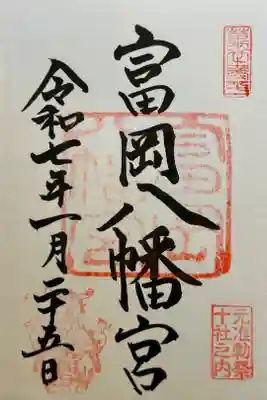 富岡八幡宮
令和七年一月二十五日
元准勅祭
十社之内